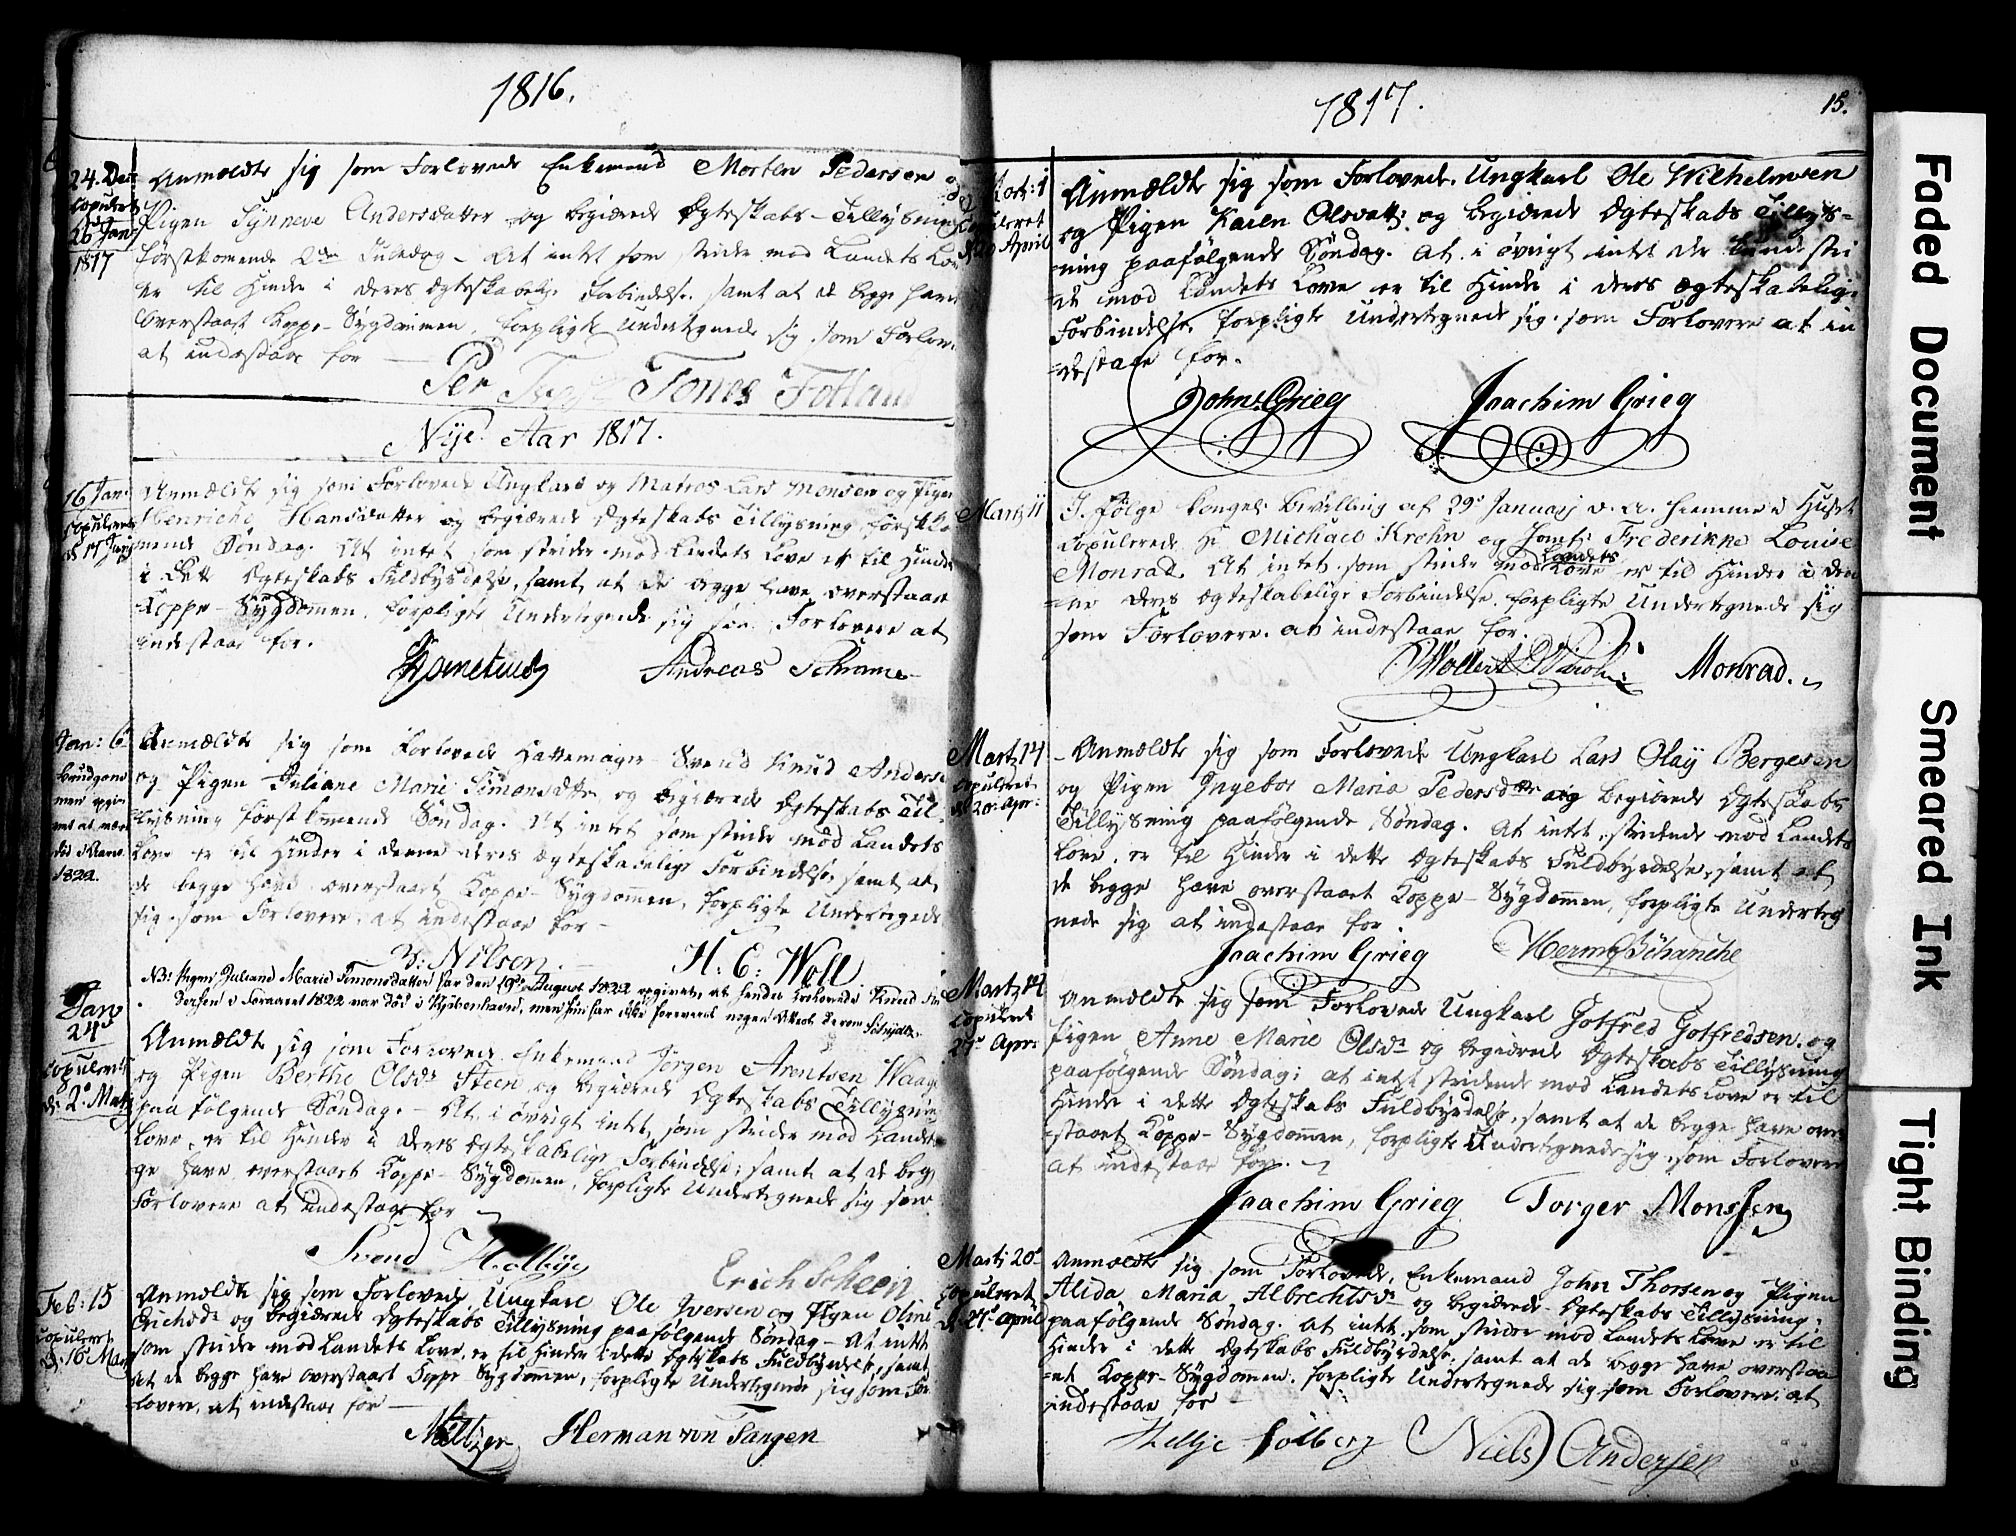 1816.
24. Dec:
Copuleret
26 Jan:
1817
Anmældte sig som Forlovede Enkemand Morten Pedersen
Pigen Synneve Andersdatter og begierede Egteskabs-Tillysning
førstkomende 2den Juledag - At intet som strider mod Landets Lov
er til Hinder i deres Egteskabelige Forbindelse, samt at de begge have
overstaaet Koppe-Sygdommen, forpligte Undertegnede sig som Forlov
at indestaae for
Per Tonnes Folland
Nye Aar 1817.
16 Jan:
Copulerede
d: 17 Juny
Anmældte sig som Forlovede Ungkarl og Matros Lars Monsen og Pigen
Henriche Hansdatter og begierede Egteskabs Tillysning førstko
mende Søndag. At intet som strider mod Landets Love er til Hinder
i dette Egteskabs Fuldbyrdelse, samt at de begge have overstaaet
Koppe-Sygdommen, forpligte Undertegnede sig som Forlovere at
indestaae for.
Andreas Schrame
Jan: 6
Brudgom
men opgi-
1822.
Anmældte sig som Forlovede Hattemager Svend Knud Anders
og Pigen Juliane Marie Simonsdatter og begierede Egteskabs Til
lysning førstkommende Søndag. At intet som strider mod Landets
Love er til Hinder i denne deres Egteskabelige Forbindelse, samt at
de begge have overstaaet Koppe-Sygdommen, forpligte Undertegnede
sig som Forlovere at indestaae for -
B: Nilsen. H: C: Woll
NB: Pigen Juliane Marie Simonsdatter har den 19de August 1822 opgivet at hendes Forlovede Knud An
dersen i Foraaret 1822 var død i Kjøbenhavn, men hun har ikke foreviist nogen Attest derom
Jan
24de
Copuleret
d: 2: Martz
Anmældte sig som Forlovede Enkemand Jørgen Arentsen Waage
og Pigen Berthe Olsdr Steen og begierede Egteskabs Tillysning
paafølgende Søndag. - At i øvrigt intet, som strider mod Landets
Love, er til Hinder i deres Egteskabelige Forbindelse, samt at de beg
ge have overstaaet Koppe-Sygdommen, forpligte Undertegnede sig som
Forlovere at indestaae for
Svend Erich Scheen
Feb: 15
Copuleret
d: 16 Mart
Anmældte sig som Forlovede Ungkarl Ole Iversen og Pigen Oline
Erichsdr og begierede Egteskabs Tillysning paafølgende Søndag - At intet
som strider mod Landets Love, er til Hinder i dette Egteskabs Fuldbyrdelse, samt
at de begge have overstaaet Koppe Sygdommen, forpligte Undertegnede sig som For
lovere, at indestaae for
Meltzer Herman von Tangen
1817.
15.
Mart: 1
Copuleret
d: 20 April
Anmældte sig som Forlovede, Ungkarl Ole Wilhelmsen
og Pigen Karen Olsdatt: og begierede Egteskabs Tillys=
ning paafølgende Søndag. At i øvrigt intet der kunde stri
de mod Landets Love er til Hinder i deres Egteskabelige
Forbindelse, forpligte Undertegnede sig som Forlovere at in
destaae for.
John Grieg Joachim Grieg
Martz 11
I Følge kongel: Bevilling af 29de January d. A. hiemme i Huset
copulerede Hr Michael Krohn og Jomf: Frederikke Louise
Monrad. At intet som strider mod Landets Love er til Hinder i den
ne deres Egteskabelige Forbindelse, forpligte Undertegnede sig
som Forlovere at indestaae for.
Wollert Monrad.
Martz 14
Copuleret
d: 20: Apr:
Anmældte sig som Forlovede Ungkarl Lars Olay Bergesen
og Pigen Ingebor Maria Pedersdtr og begierede Egteskabs
Tillysning paafølgende Søndag. At intet stridende mod Landets
Love, er til Hinder i dette Egteskabs Fuldbyrdelse, samt at
de begge have overstaaet Koppe-Sygdommen, forpligte Underteg
nede sig at indestaae for.
Joachim Grieg Herm: Schanche
Martz 14
Copuleret
27de Apr:
Anmældte sig som Forlovede Ungkarl Gotfred Gotfredsen og
Pigen Anne Marie Olsdr og begierede Egteskabs Tillysning
paafølgende Søndag; at intet stridende mod Landets Love er til
Hinder i dette Egteskabs Fuldbyrdelse, samt at de begge have over
staaet Koppe-Sygdommen, forpligte Undertegnede sig som Forlovere
at indestaae for.
Joachim Grieg Torger Monssen
Mart: 20de
Copuleret
d: 27de April
Anmældte sig som Forlovede, Enkemand John Thorsen og Pigen
Alida Maria Albrechtsdr og begierede Egteskabs Tillysning
paafølgende Søndag. At intet som strider mod Landets Love er til
Hinder i dette Egteskabs Fuldbyrdelse, samt at de begge have overstaa
et Koppe-Sygdommen, forpligte Undertegnede sig som Forlovere at
indestaae for
Helje Solberg Niels Andersen
Faded Document
Smeared Ink
Tight Binding